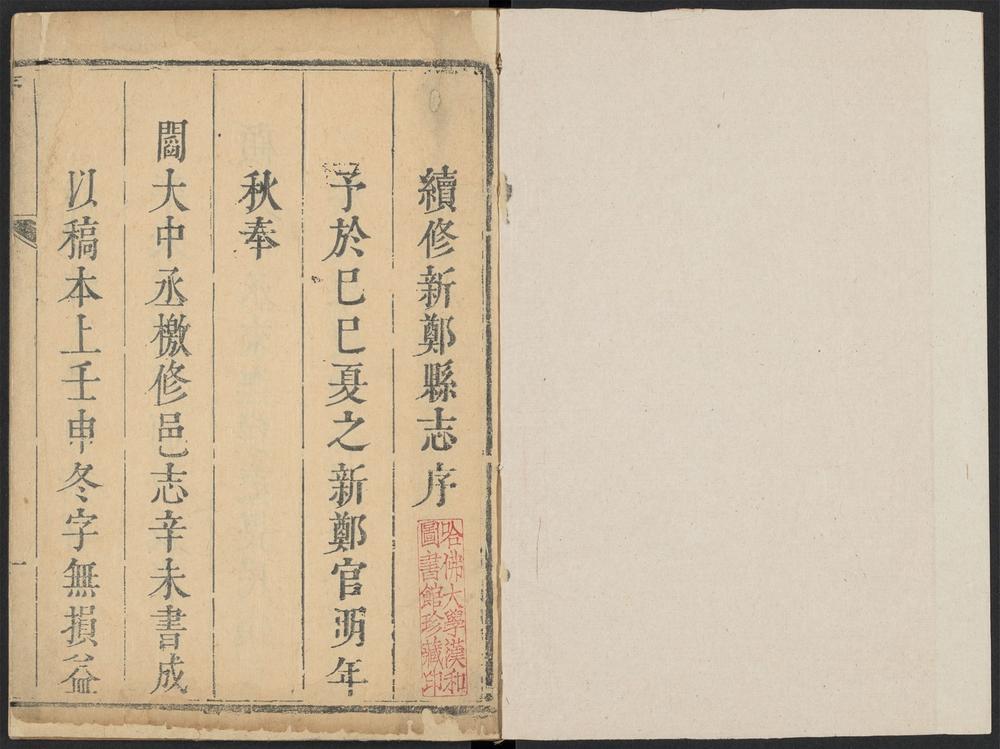 續修新鄭縣志序
哈佛大學漢和
圖書館珍藏印
予於巳巳夏之新鄭官眀年
秋奉
閻大中丞檄修邑志辛未書成
以稿本上壬申冬字無損益